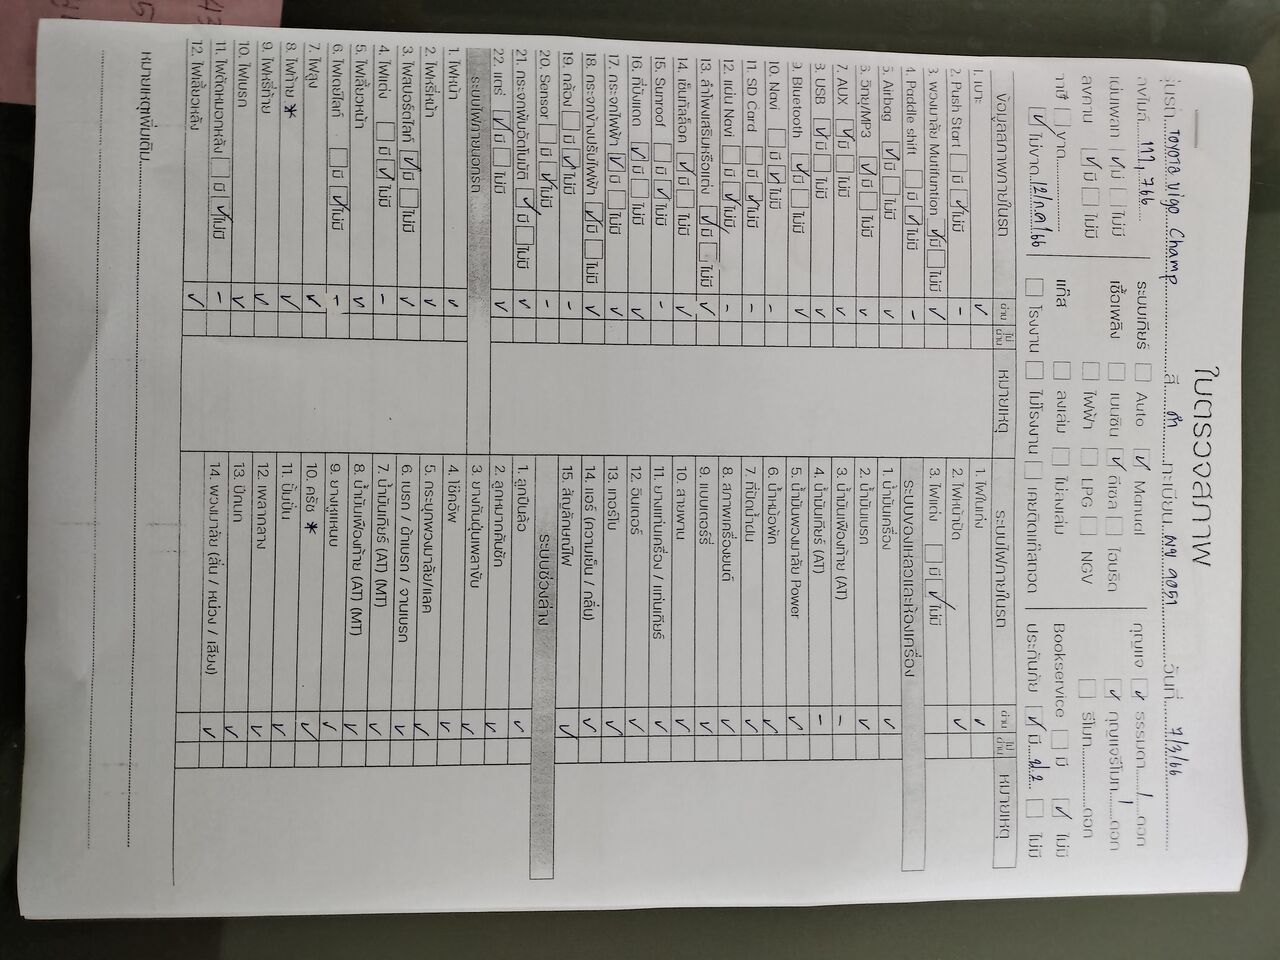 ใบตรวจสภาพ
รุ่นรถ TOYOTA Vigo Champ สี ดำ ทะเบียน ผข 9051 วันที่ 7/3/66
เลขไมล์ 117,766 ระบบเกียร์ Auto ✓ Manual กุญแจ ✓ ธรรมดา 1 ดอก
แผ่นเพลท ✓ มี ไม่มี เชื้อเพลิง เบนซิน ✓ ดีเซล ไฮบริด ✓ กุญแจรีโมท 1 ดอก
ลงคาน ✓ มี ไม่มี ไฟฟ้า LPG NGV รีโมท ดอก
ภาษี ขาด แก๊ส ลงเล่ม ไม่ลงเล่ม Bookservice มี ✓ ไม่มี
✓ ไม่ขาด 12/ก.ค/66 โรงงาน ไม่โรงงาน เคยติดแก๊สถอด ประกันภัย ✓ มี ป.2 ไม่มี
ข้อมูลสภาพภายในรถ ผ่าน ไม่ผ่าน หมายเหตุ
1. เบาะ ✓
2. Push Start มี ✓ ไม่มี -
3. พวงมาลัย Multifuntion ✓ มี ไม่มี ✓
4. Paddle shift มี ✓ ไม่มี -
5. Airbag ✓ มี ไม่มี ✓
6. วิทยุ/MP3 ✓ มี ไม่มี ✓
7. AUX ✓ มี ไม่มี ✓
8. USB ✓ มี ไม่มี ✓
9. Bluetooth ✓ มี ไม่มี ✓
10. Navi มี ✓ ไม่มี -
11. SD Card มี ✓ ไม่มี -
12. แผ่น Navi มี ✓ ไม่มี -
13. ลำโพงเสริมหรือแต่ง ✓ มี ไม่มี ✓
14. เซ็นทัลล็อค ✓ มี ไม่มี ✓
15. Sunroof มี ✓ ไม่มี -
16. ที่บังแดด ✓ มี ไม่มี ✓
17. กระจกไฟฟ้า ✓ มี ไม่มี ✓
18. กระจกข้างปรับไฟฟ้า ✓ มี ไม่มี ✓
19. กล้อง มี ✓ ไม่มี -
20. Sensor มี ✓ ไม่มี -
21. กระจกพับอัตโนมัติ ✓ มี ไม่มี ✓
22. แตร ✓ มี ไม่มี ✓
ระบบไฟภายนอกรถ
1. ไฟหน้า ✓
2. ไฟหรี่หน้า ✓
3. ไฟสปอร์ตไลท์ ✓ มี ไม่มี ✓
4. ไฟแต่ง มี ✓ ไม่มี -
5. ไฟเลี้ยวหน้า ✓
6. ไฟเดย์ไลท์ มี ✓ ไม่มี -
7. ไฟสูง ✓
8. ไฟท้าย * ✓
9. ไฟหรี่ท้าย ✓
10. ไฟเบรก ✓
11. ไฟตัดหมอกหลัง มี ✓ ไม่มี -
12. ไฟเลี้ยวหลัง ✓
ระบบไฟภายในรถ ผ่าน ไม่ผ่าน หมายเหตุ
1. ไฟในเก๋ง ✓
2. ไฟหน้าปัด ✓
3. ไฟแต่ง มี ✓ ไม่มี
ระบบของเหลวและห้องเครื่อง
1. น้ำมันเครื่อง ✓
2. น้ำมันเบรก ✓
3. น้ำมันเฟืองท้าย (AT) -
4. น้ำมันเกียร์ (AT) -
5. น้ำมันพวงมาลัย Power ✓
6. น้ำหม้อพัก ✓
7. ที่ปัดน้ำฝน ✓
8. สภาพเครื่องยนต์ ✓
9. แบตเตอร์รี่ ✓
10. สายพาน ✓
11. ยางแท่นเครื่อง / แท่นเกียร์ ✓
12. อินเตอร์ ✓
13. เทอร์โบ ✓
14. แอร์ (ความเย็น / กลิ่น) ✓
15. สัญลักษณ์ไฟ ✓
ระบบช่วงล่าง
1. ลูกปืนล้อ ✓
2. ลูกหมากคันชัก ✓
3. ยางกันฝุ่นเพลาขับ ✓
4. โช้คอัพ ✓
5. กระปุกพวงมาลัย/แลค ✓
6. เบรก / ผ้าเบรก / จานเบรก ✓
7. น้ำมันเกียร์ (AT) (MT) ✓
8. น้ำมันเฟืองท้าย (AT) (MT) ✓
9. ยางหุแหนบ ✓
10. ครัช * ✓
11. ปั้มปั่น ✓
12. เพลากลาง ✓
13. ปีกนก ✓
14. พวงมาลัย (ลื่น / หน่วง / เสียง) ✓
หมายเหตุเพิ่มเติม